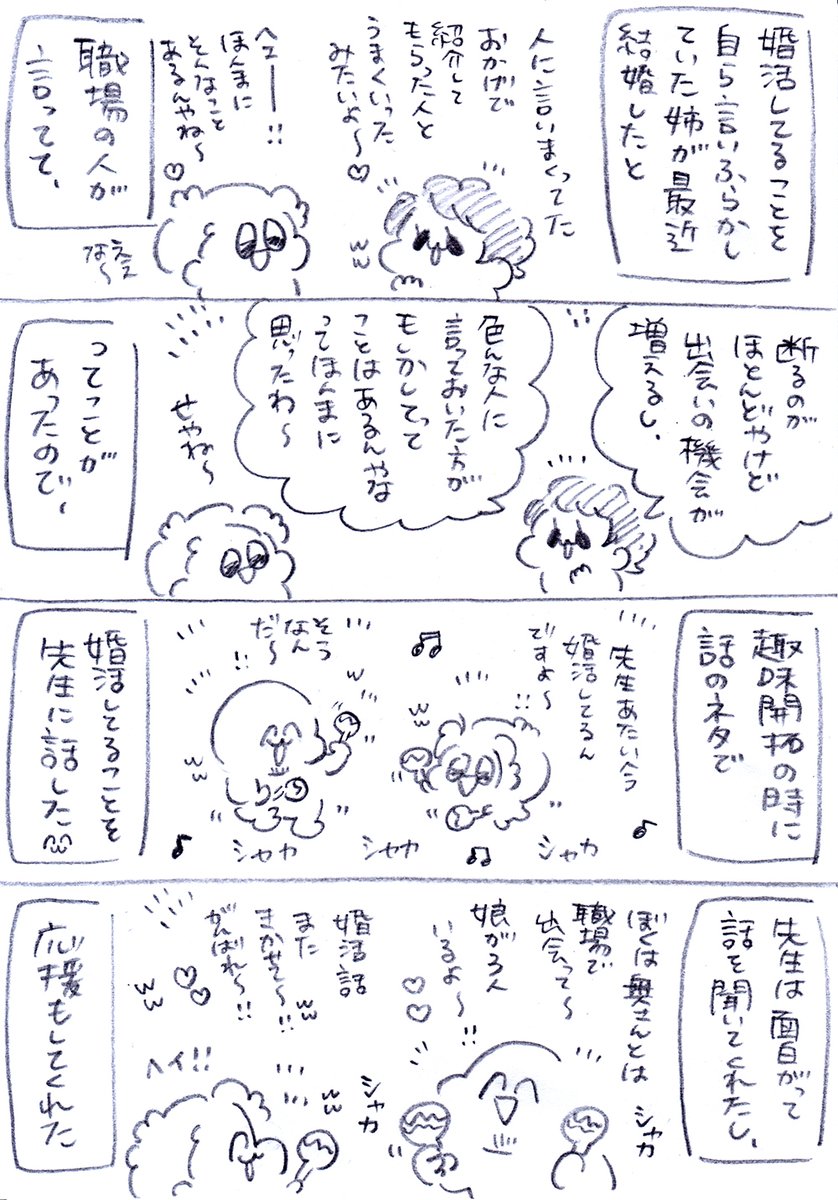 婚活してることを
自ら言いふらかし
ていた姉が最近
結婚したと
人に言いまくってた
おかげで
紹介して
もらった人と
うまくいった
みたいよ〜♡
ヘェー!!
ほんまに
そんなこと
あるんやね〜♡
ええ
な〜
職場の人が
言ってて、
断るのが
ほとんどやけど
出会いの機会が
増えるし、
色んな人に
言っておいた方が
もしかしてって
ことはあるんやな
ってほんまに
思ったわ〜
せやね〜
ってことが
あったので、
趣味開拓の時に
話のネタで
先生あたい今
婚活してるん
ですよ〜!!
そう
なん
だ〜!!
シャカ
シャカ
シャカ
婚活してることを
先生に話した
先生は面白がって
話を聞いてくれたし、
ぼくは奥さんとは
職場で
出会って〜
娘が3人
いるよ〜!!
シャカ
シャカ
婚活話
また
きかせて〜!!
がんばれ〜!!
ヘイ!!
応援もしてくれた